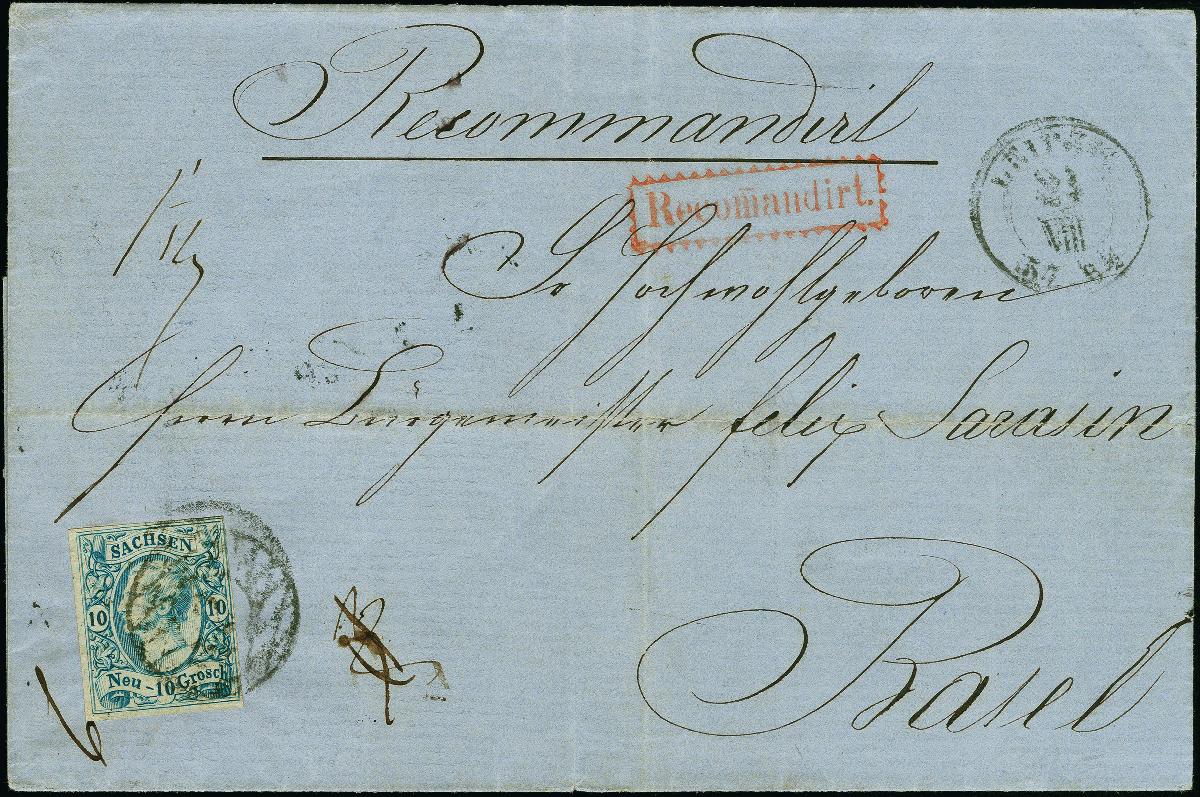 Recommandirt
Recom̄andirt.
LEIPZIG
VIII
57 8½
Sr Hochwohlgeboren
Herrn Bürgemeister Felix Sarasin
Basel
SACHSEN
10 10
Neu-10 Grosch
6